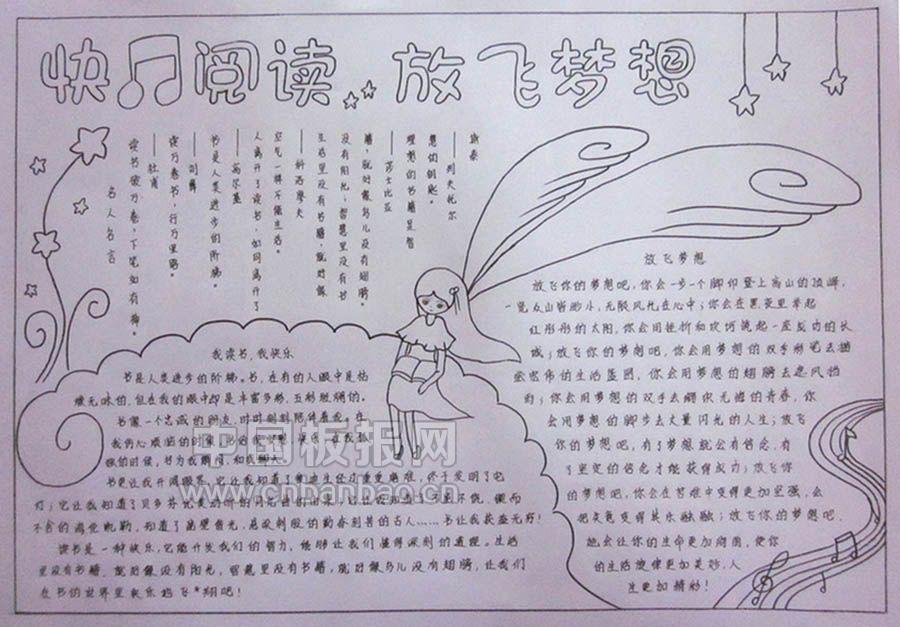 快阅读 放飞梦想
名人名言
读书破万卷,下笔如有神。
——杜甫
读万卷书,行万里路。
——刘彝
书是人类进步的阶梯。
——高尔基
人离开了读书,如同离开了
空气一样不能生活。
——科洛廖夫
生活里没有书籍,就好像
没有阳光;智慧里没有书
籍,就好像鸟儿没有翅膀。
——莎士比亚
理想的书籍是智
慧的钥匙。
——列夫托尔
斯泰
我读书,我快乐
书是人类进步的阶梯。书,在有的人眼中是枯
燥无味的,但在我的眼中却是丰富多彩,五彩斑斓的。
书像一个忠诚的朋友,时时刻刻陪伴着我。在
我伤心烦恼的时候,书给我
的时候,书为我
书更让我开阔眼界,它让我知道了
灯;它让我知道了贝多芬
不舍的海伦凯勒,知道了凿壁偷光、悬梁刺股的勤奋刻苦的古人……书让我获益无穷!
读书是一种快乐,它能开发我们的智力,能够让我们懂得深刻的道理。生活
里没有书籍,就好像没有阳光,智慧里没有书籍,就好像鸟儿没有翅膀,让我们
在书的世界里快乐的飞*翔吧!
放飞梦想
放飞你的梦想吧,你会一步一个脚印登上高山的顶峰,
一览众山皆渺小,无限风光在心中;你会在黑夜里举起
红彤彤的太阳,你会用挫折和坎坷浇起一座成功的长
城;放飞你的梦想吧,你会用梦想的双手彩笔去描
绘宏伟的生活蓝图,你会用梦想的翅膀去追风挡
雨;你会用梦想的双手去翻织无悔的青春,你
会用梦想的脚步去丈量闪光的人生;放飞
你的梦想吧,有了梦想就会有信念,有
了坚定的信念才能获得成功;放飞你
的梦想吧,你会在苦难中变得更加坚强,会
把灰色变得其乐融融;放飞你的梦想吧,
她会让你的生命更加绚丽,使你
的生活旋律更加美妙,人
生更加精彩!
中国板报网
www.cnbanbao.cn